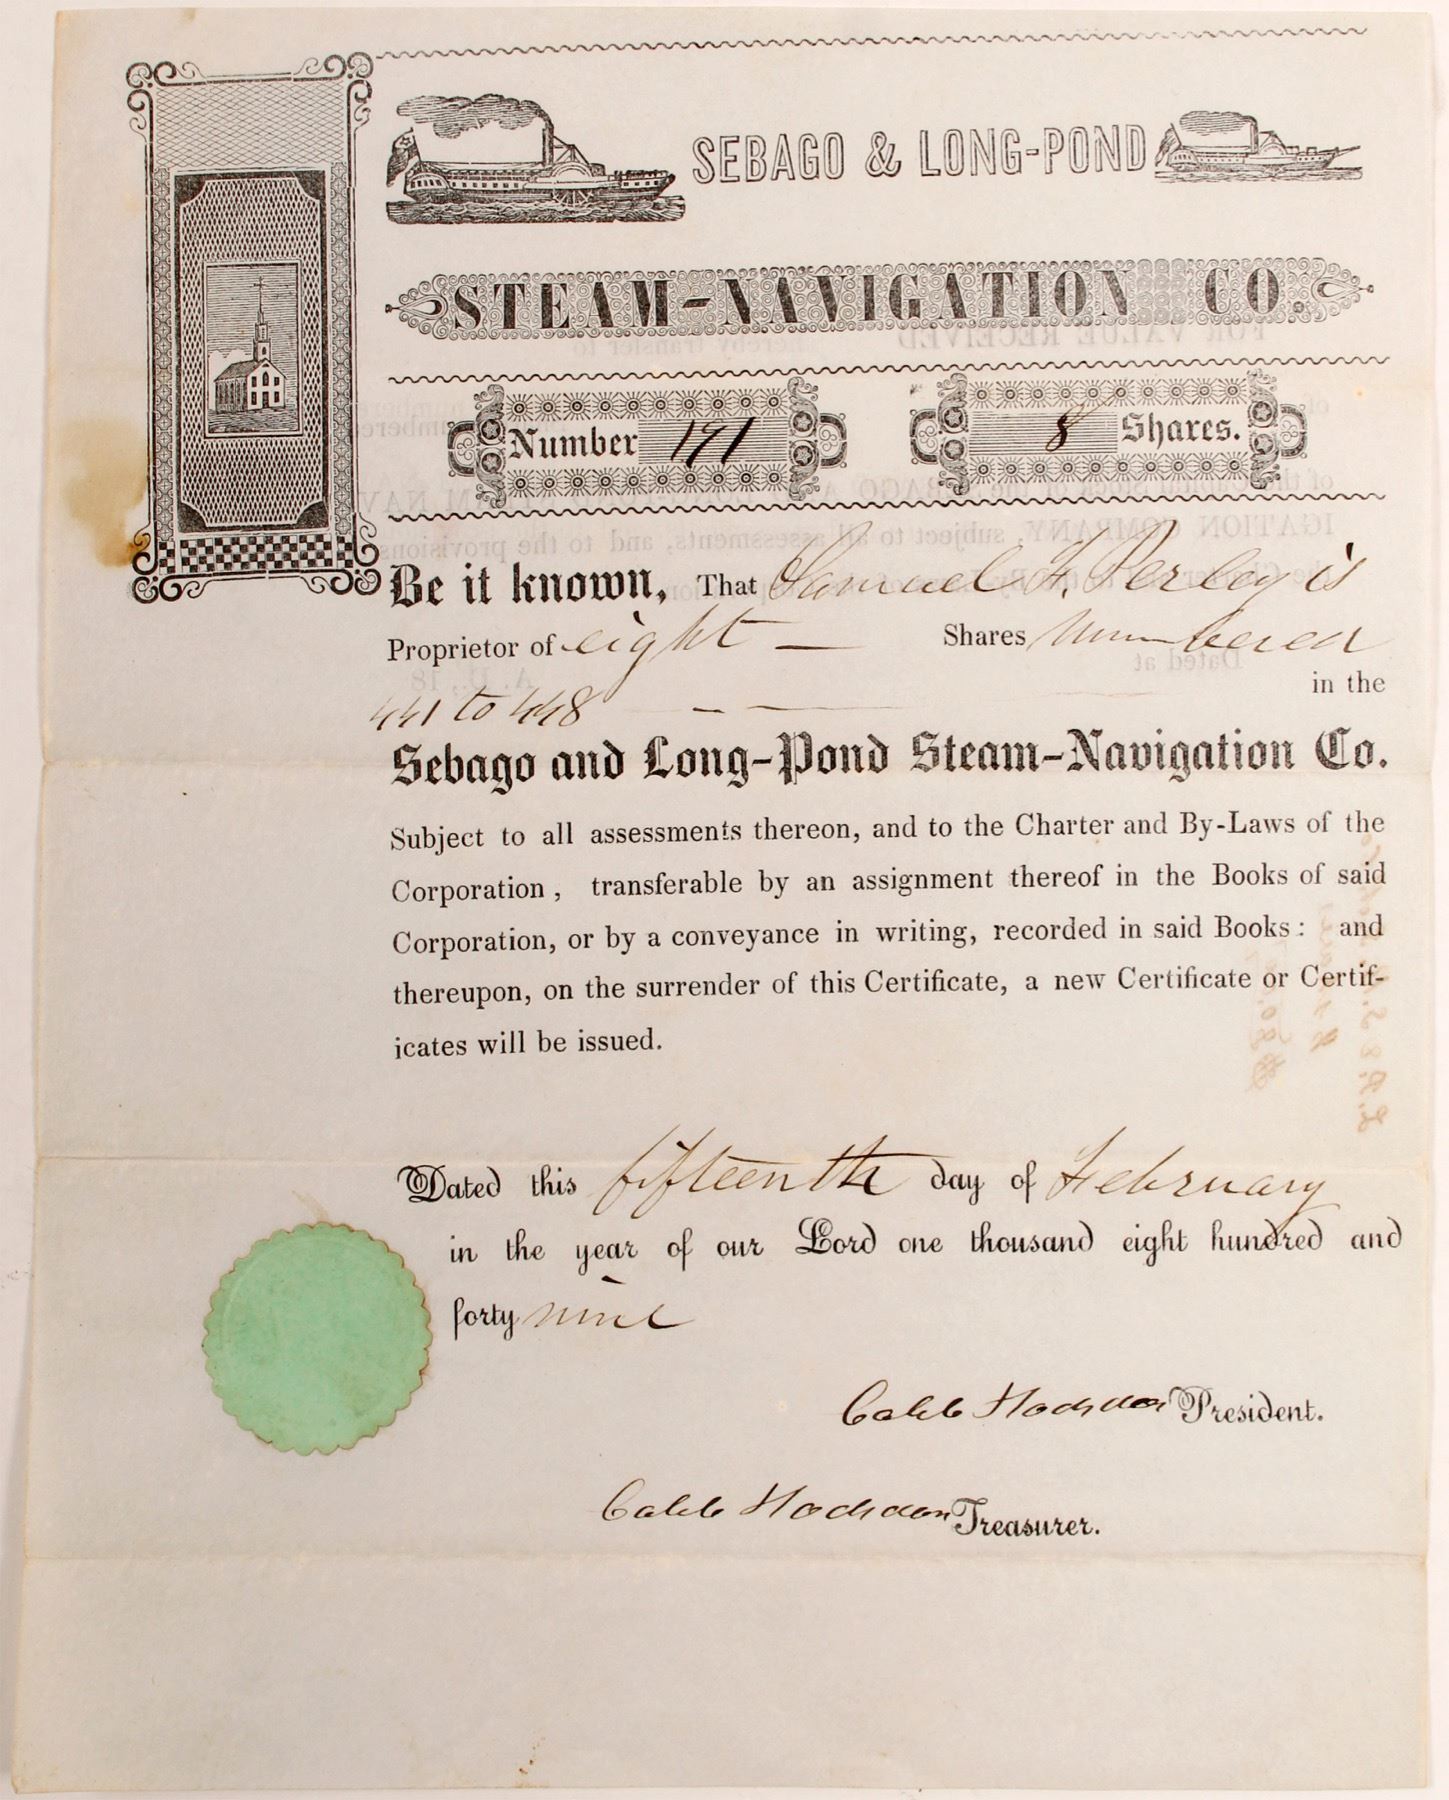 SEBAGO & LONG-POND
STEAM-NAVIGATION CO.
Number 191
8 Shares.
Be it known, That Samuel F. Perley is
Proprietor of eight — Shares Numbered
441 to 448 — — in the
Sebago and Long-Pond Steam-Navigation Co.
Subject to all assessments thereon, and to the Charter and By-Laws of the
Corporation, transferable by an assignment thereof in the Books of said
Corporation, or by a conveyance in writing, recorded in said Books: and
thereupon, on the surrender of this Certificate, a new Certificate or Certif-
icates will be issued.
Dated this fifteenth day of February
in the year of our Lord one thousand eight hundred and
forty nine
Caleb Hodsdon President.
Caleb Hodsdon Treasurer.